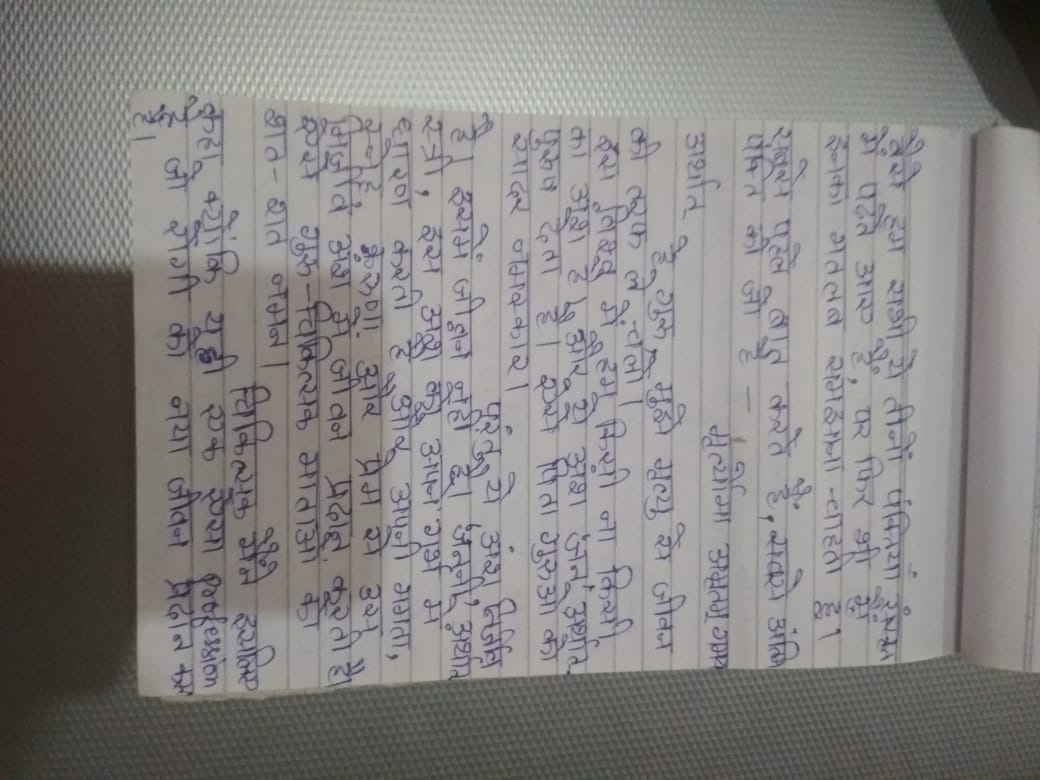 वैसे हम सभी ये तीनों पंक्तियाँ
में पढ़ते आए हैं, पर फिर भी मैं
इनका मतलब समझाना चाहती हूँ।
सबसे पहले बात करते हैं, सबसे अंतिम
पंक्ति की जो है -
मृत्योर्मा अमृतम् गमय
अर्थात्
हे गुरु, मुझे मृत्यु से जीवन
की तरफ ले चलो।
इस विश्व में हम किसी ना किसी
का अंश है और ये अंश जन्म अर्थात्
पुरूष देता है। ऐसे पिता गुरुओं को
सादर नमस्कार।
परंतु ये अंश निर्जीव
है। इसमें जीवन नहीं है। जननी, अर्थात
स्त्री, इस अंश को अपने गर्भ में
धारण करती है और अपनी ममता,
स्नेह, करुणा और प्रेम से उस
निर्जीव अंश में जीवन प्रदान करती है।
ऐसी गुरु-चिकित्सक माताओं को
शत-शत नमन।
चिकित्सक मैंने इसलिए
कहा क्योंकि यही एक ऐसा Profession
है जो रोगी को नया जीवन प्रदान करता
है।